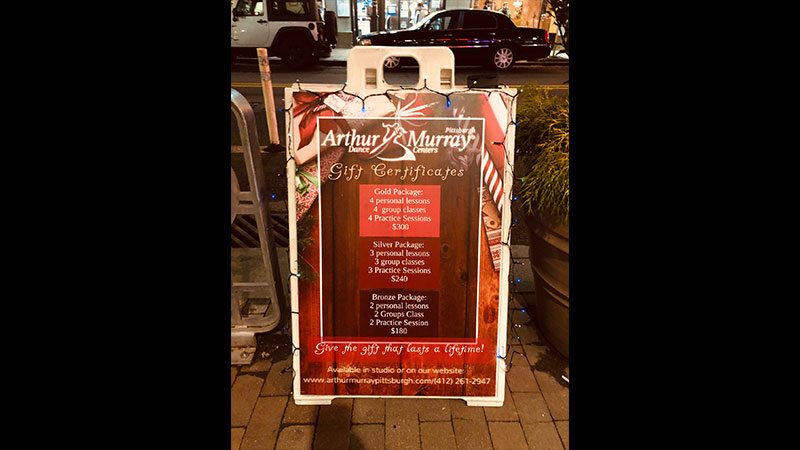 Pittsburgh
Arthur Murray
Dance Centers
Gift Certificates
Gold Package:
4 personal lessons
4 group classes
4 Practice Sessions
$300
Silver Package:
3 personal lessons
3 group classes
3 Practice Sessions
$240
Bronze Package:
2 personal lessons
2 Groups Class
2 Practice Session
$180
Give the gift that lasts a lifetime!
Available in studio or on our website:
www.arthurmurraypittsburgh.com/(412) 261-2947